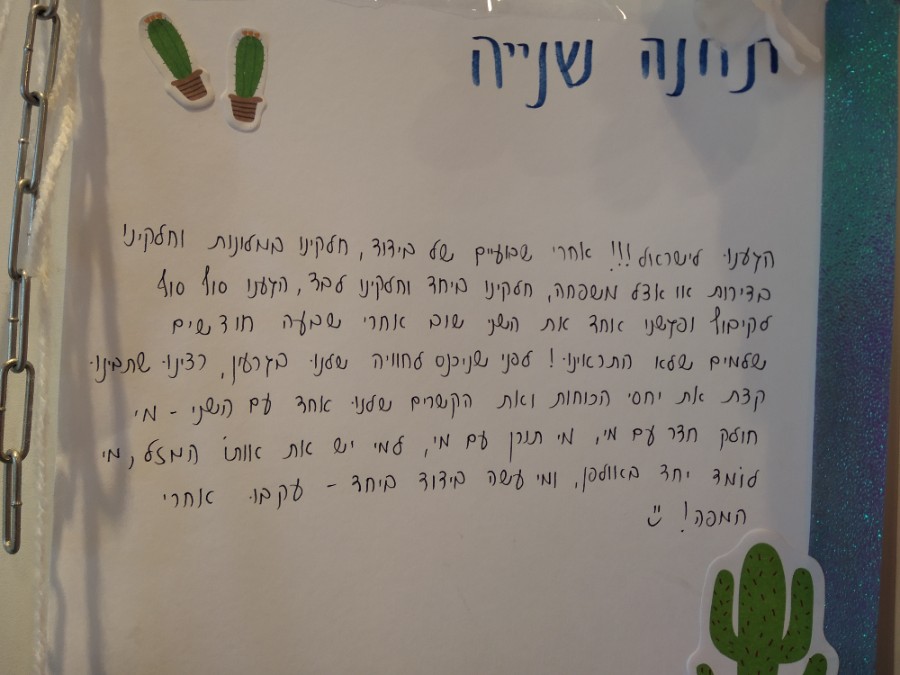 תחנה שנייה
הגענו לישראל!!! אחרי שבועיים של בידוד, חלקינו במלונות וחלקינו
בדירות או אצל משפחה, חלקינו ביחד וחלקינו לבד, הגענו סוף סוף
לקיבוץ ופגשנו אחד את השני שוב אחרי שבעה חודשים
שלמים שלא התראינו! לפני שניכנס לחוויה שלנו בגרעין, רצינו שתבינו
קצת את יחסי הכוחות ואת הקשרים שלנו אחד עם השני - מי
חולק חדר עם מי, מי תורן עם מי, למי יש את אותו המזל, מי
לומד יחד באולפן, ומי עשה בידוד ביחד - עקבו אחרי
המפה! ☺